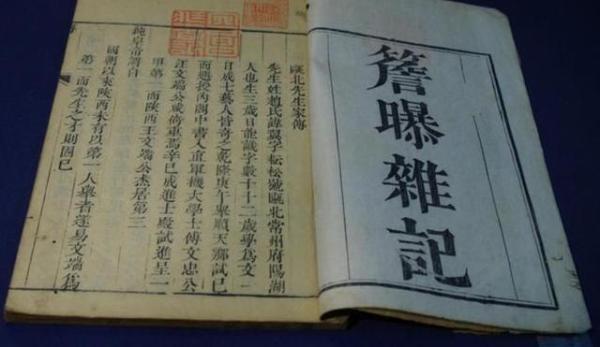 簷曝雜記
甌北先生家傳
先生姓趙氏諱翼字耘松號甌北常州府陽湖
人也生三歲日能識字數十十二歲學爲文一
日成七藝人皆奇之乾隆庚午舉順天鄉試已
而選授內閣中書入直軍機大學士傅文忠公
汪文端公咸倚重焉辛巳成進士殿試進呈一
甲第一而陝西王文端公杰居第三
純皇帝謂自
國朝以來陝西未有以第一人舉者遂易文端爲
第一而先生之才則固已